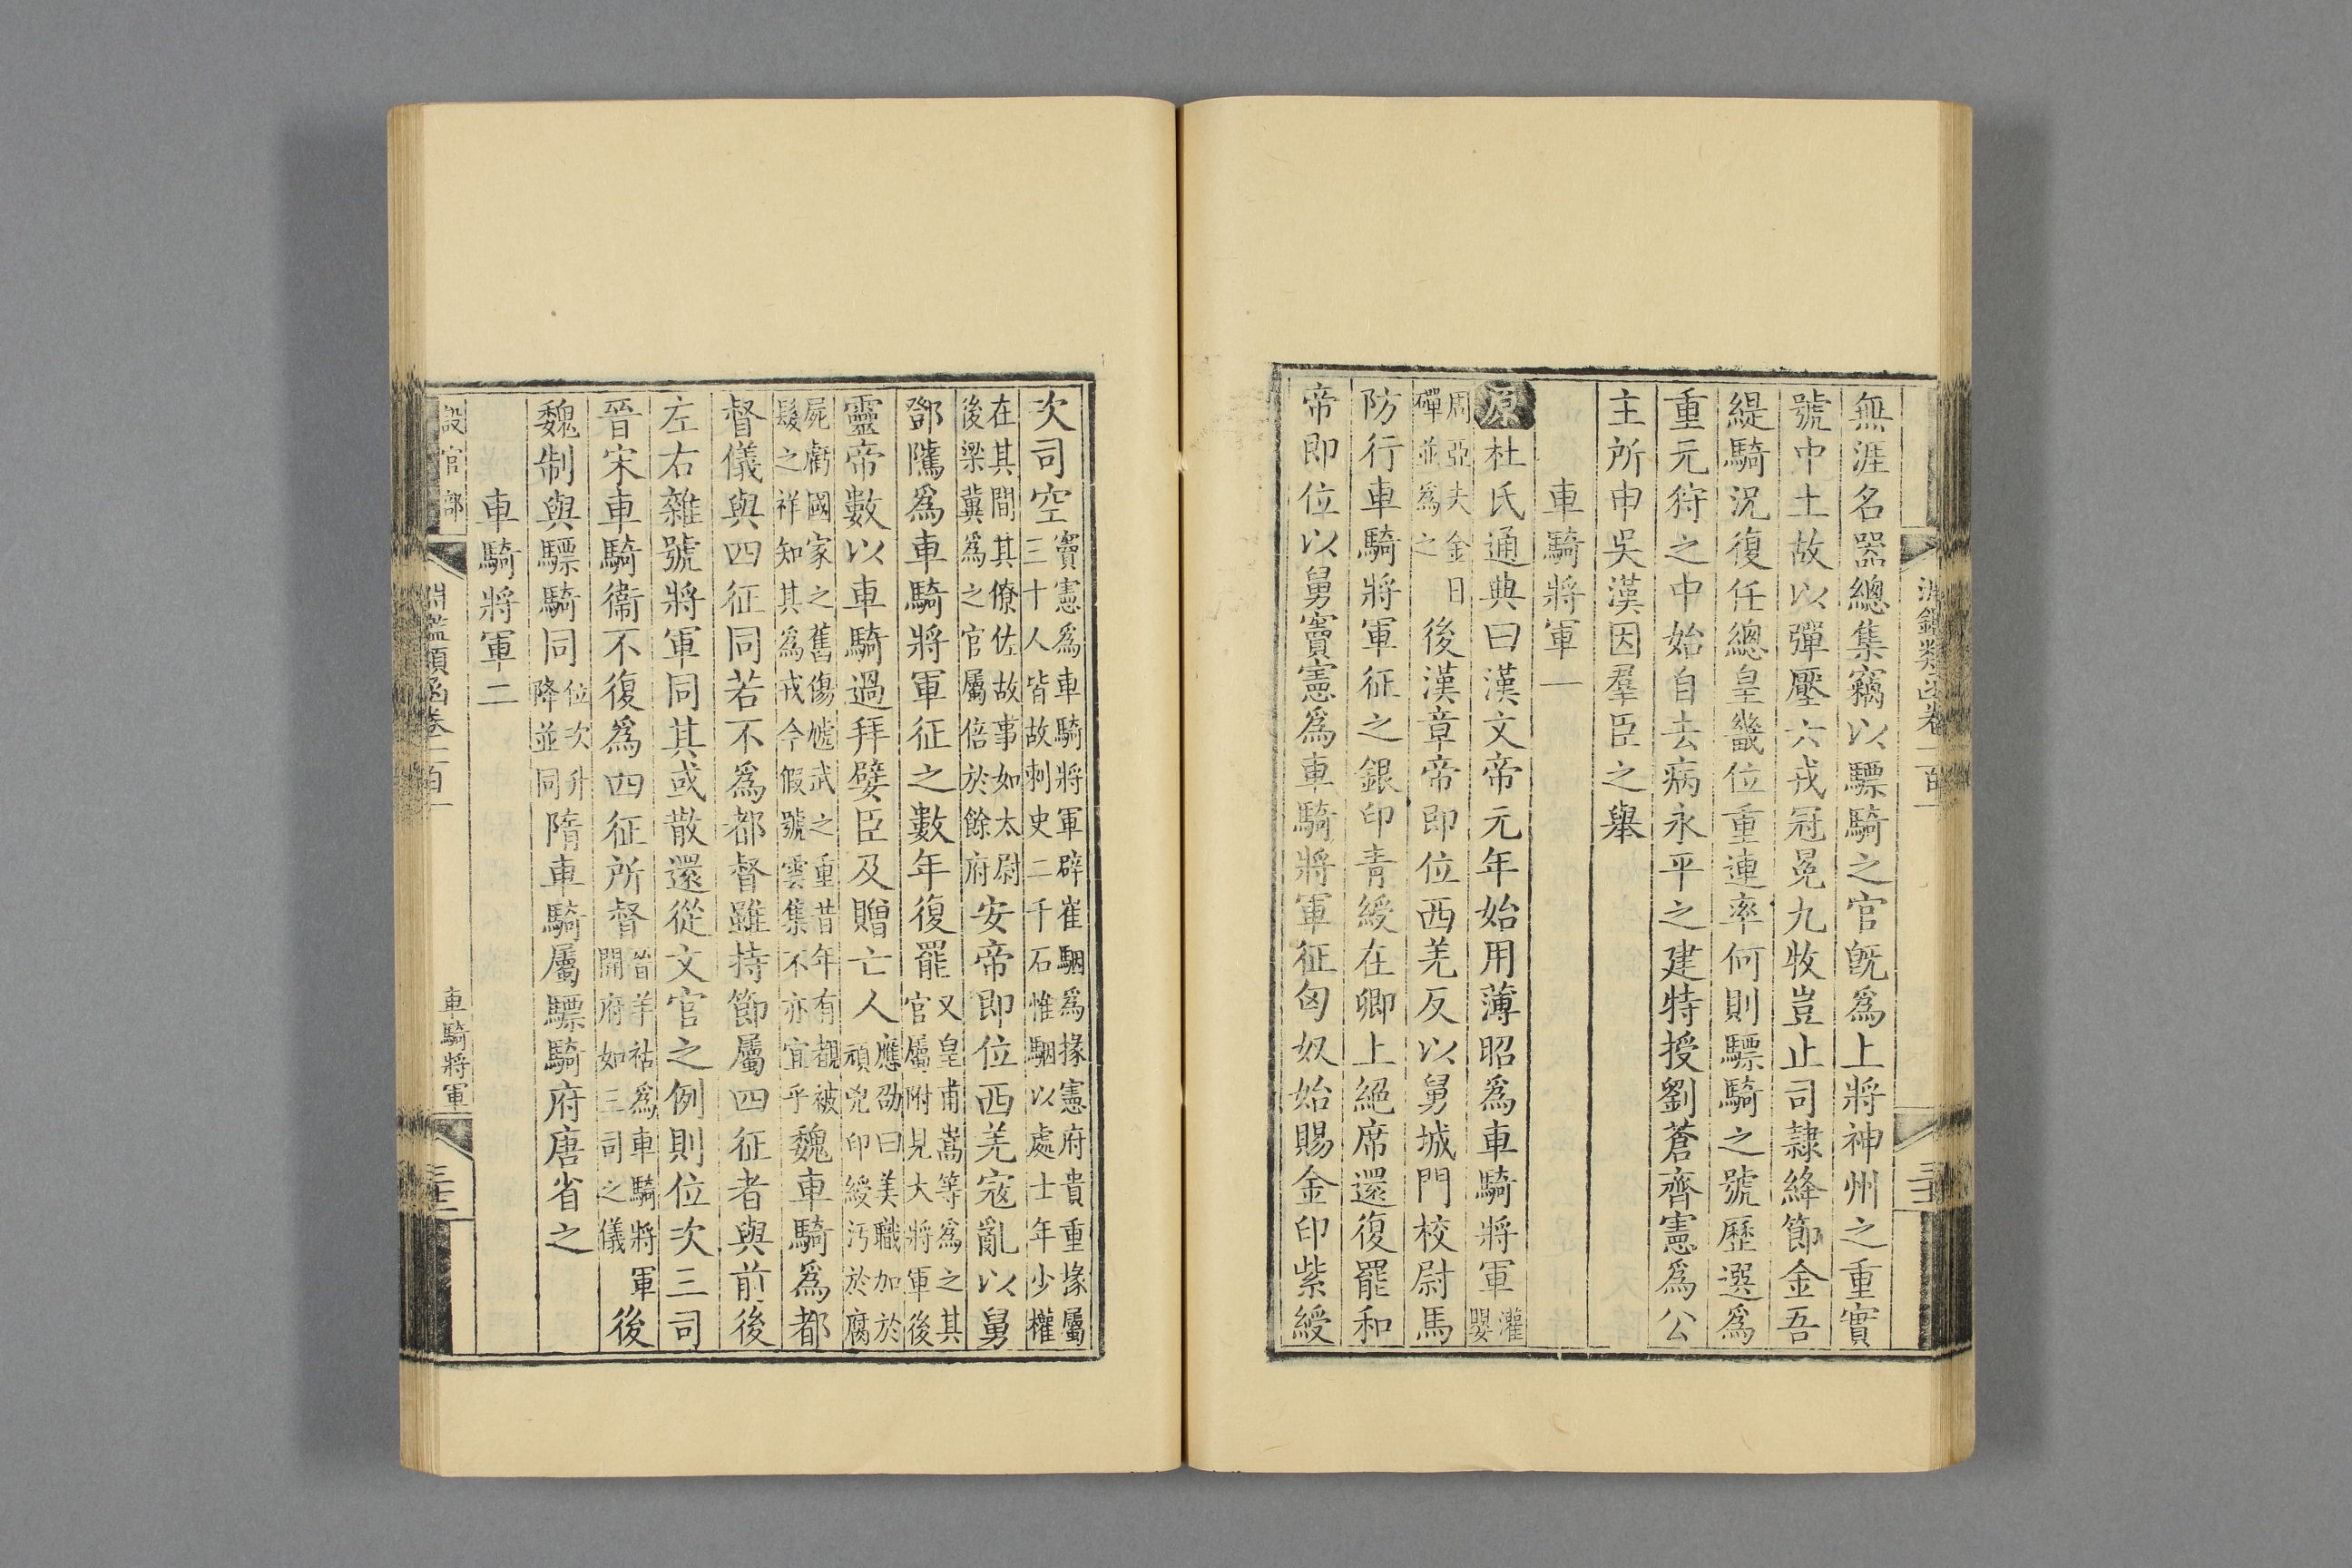 無涯名器總集竊以驃騎之官旣爲上將神州之重實
號中土故以彈壓六戎冠冕九牧豈止司隷絳節金吾
緹騎況復任總皇畿位重連率何則驃騎之號歷選爲
重元狩之中始自去病永平之建特授劉蒼齊憲爲公
主所申吳漢因羣臣之舉
車騎將軍一
原杜氏通典曰漢文帝元年始用薄昭爲車騎將軍灌嬰
周亞夫金日
磾並爲之
後漢章帝即位西羌反以舅城門校尉馬
防行車騎將軍征之銀印青綬在卿上絕席還復罷和
帝即位以舅竇憲爲車騎將軍征匈奴始賜金印紫綬
次司空
竇憲爲車騎將軍辟崔駰爲掾憲府貴重掾屬
三十人皆故刺史二千石惟駰以處士年少權
在其間其僚佐故事如太尉
後梁冀爲之官屬倍於餘府
安帝即位西羌寇亂以舅
鄧隲爲車騎將軍征之數年復罷
又皇甫嵩等爲之其
官屬附見大將軍後
靈帝數以車騎過拜嬖臣及贈亡人
應劭曰美職加於
頑兇印綬汚於腐
屍虧國家之舊傷虓武之重昔年有觀被
髮之祥知其爲戎今假號雲集不亦宜乎
魏車騎爲都
督儀與四征同若不爲都督雖持節屬四征者與前後
左右雜號將軍同其或散還從文官之例則位次三司
晉宋車騎衞不復爲四征所督
晉羊祜爲車騎將軍
開府如三司之儀
後
魏制與驃騎同
位次升
降並同
隋車騎屬驃騎府唐省之
車騎將軍二
設官部
淵鑑類函卷一百一
車騎將軍